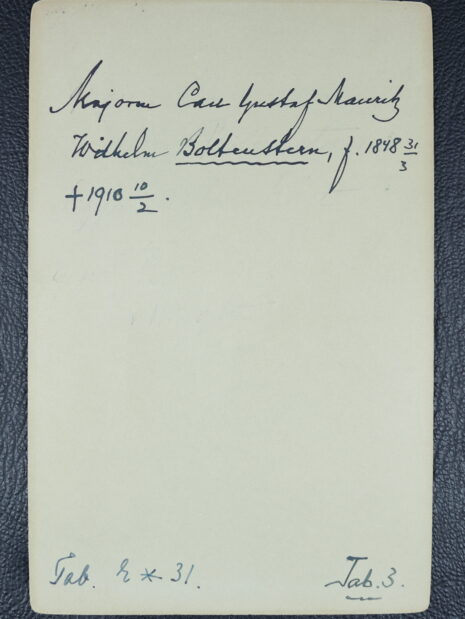 Majoren Carl Gustaf Mauritz
Wilhelm Boltenstern, f. 1848 31/3
† 1910 10/2.
Tab. 2 * 31.
Tab. 3.